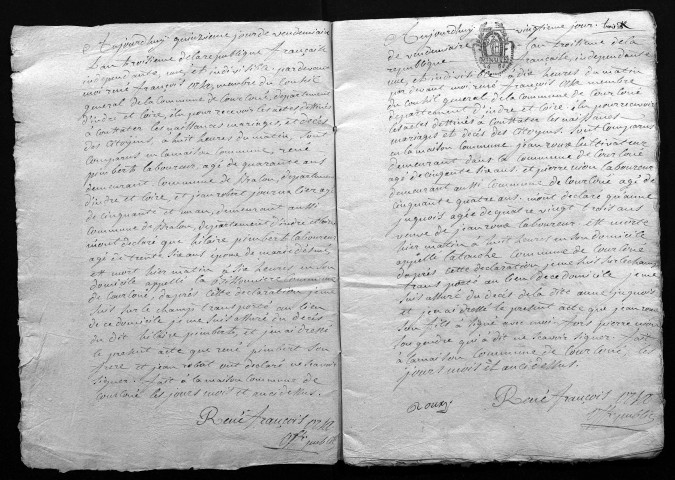 Aujourdhuy quinzieme jour de vendemiaire
l'an troisieme de la republique françaisse
independante, une, et indivisible, par devant
moi rené françois membre du Conseil
general de la Commune de Courcoué, departement
d'indre et Loire, élu pour recevoir les actes destinés
a Constater les naissances mariages, et décès
des Citoyens, a huit heures du matin, Sont
Comparus en la maison Commune, rené
pimbert laboureur agé de quarante ans
demeurant Commune de Bralou, departement
d'indre et Loire, et jean robert journalier agé
de Cinquante et un an, demeurant aussi
Commune de Bralou, departement d'indre et Loire
mont declaré que hilaire pimbert laboureur
agé de trente six ans epoux de marie
est mort hier matin a six heures en son
domicile appellé la Commune
de Courcoué, d'après cette declaration je me
Suis Sur le champ transporté au lieu
de ce domicile je me Suis assuré du décès
du dit hilaire pimbert, et j'en ai dressé
le present acte que rené pimbert Son
frere et jean robert ont declaré ne Scavoir
Signer: fait a la maison Commune de
Courcoué les jours mois et an cidessus.
René françois
off. public
Aujourdhuy vingtieme jour
de vendemiaire l'an troisieme de la
republique françaisse, independante
une, et indivisible, a dix heures du matin
par devant moi rené françois membre
du Conseil general de la Commune de Courcoué
departement d'indre et Loire, élu pour recevoir
les actes destinés a Constater les naissances
mariages et décès des Citoyens. Sont Comparus
en la maison Commune jean roux Cultivateur
demeurant dans la Commune de Courcoué
agé de Cinquante six ans, et pierre laboureur
demeurant aussi Commune de Courcoué agé de
Cinquante quatre ans. mont declaré qu'anne
juquois agée de quatre vingt trois ans
veuve de jean roux laboureur est morte
hier matin a huit heures en son domicile
appellé la touche Commune de Courcoué
d'après cette declaration je me Suis Sur le champ
transporté au lieu de ce domicile je me
Suis assuré du décès de la dite anne juquois
et j'en ai dressé le present acte que jean roux
Son fils a Signé avec moi. pierre
Son gendre qui a dit ne Scavoir Signer. fait
a la maison Commune de Courcoué les
jours mois et an cidessus.
Roux
René françois
off. public